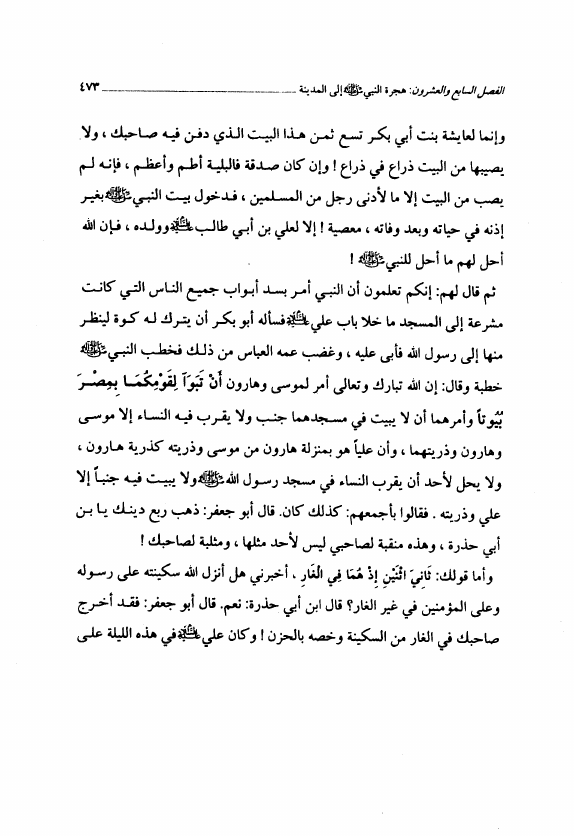 الفصل السابع والعشرون: هجرة النبي ﷺ إلى المدينة ٤٧٣
وإنما لعايشة بنت أبي بكر تسع ثمن هذا البيت الذي دفن فيه صاحبك ، ولا
يصيبها من البيت ذراع في ذراع ! وإن كان صدقة فالبلية أطم وأعظم ، فإنه لم
يصب من البيت إلا ما لأدنى رجل من المسلمين ، فدخول بيت النبي ﷺ بغير
إذنه في حياته وبعد وفاته ، معصية ! إلا لعلي بن أبي طالب عليه السلام وولده ، فإن الله
أحل لهم ما أحل للنبي ﷺ !
ثم قال لهم: إنكم تعلمون أن النبي أمر بسد أبواب جميع الناس التي كانت
مشرعة إلى المسجد ما خلا باب علي عليه السلام فسأله أبو بكر أن يترك له كوة لينظر
منها إلى رسول الله فأبى عليه ، وغضب عمه العباس من ذلك فخطب النبي ﷺ
خطبة وقال: إن الله تبارك وتعالى أمر لموسى وهارون أَنْ تَبَوَّآ لِقَوْمِكُمَا بِمِصْرَ
بُيُوتاً وأمرهما أن لا يبيت في مسجدهما جنب ولا يقرب فيه النساء إلا موسى
وهارون وذريتهما ، وأن علياً هو بمنزلة هارون من موسى وذريته كذرية هارون ،
ولا يحل لأحد أن يقرب النساء في مسجد رسول الله ﷺ ولا يبيت فيه جنباً إلا
علي وذريته . فقالوا بأجمعهم: كذلك كان. قال أبو جعفر: ذهب ربع دينك يا بن
أبي حذرة ، وهذه منقبة لصاحبي ليس لأحد مثلها ، ومثلبة لصاحبك !
وأما قولك: ثَانِيَ اثْنَيْنِ إِذْ هُمَا فِي الْغَارِ ، أخبرني هل أنزل الله سكينته على رسوله
وعلى المؤمنين في غير الغار؟ قال ابن أبي حذرة: نعم. قال أبو جعفر: فقد أخرج
صاحبك في الغار من السكينة وخصه بالحزن ! وكان علي عليه السلام في هذه الليلة على